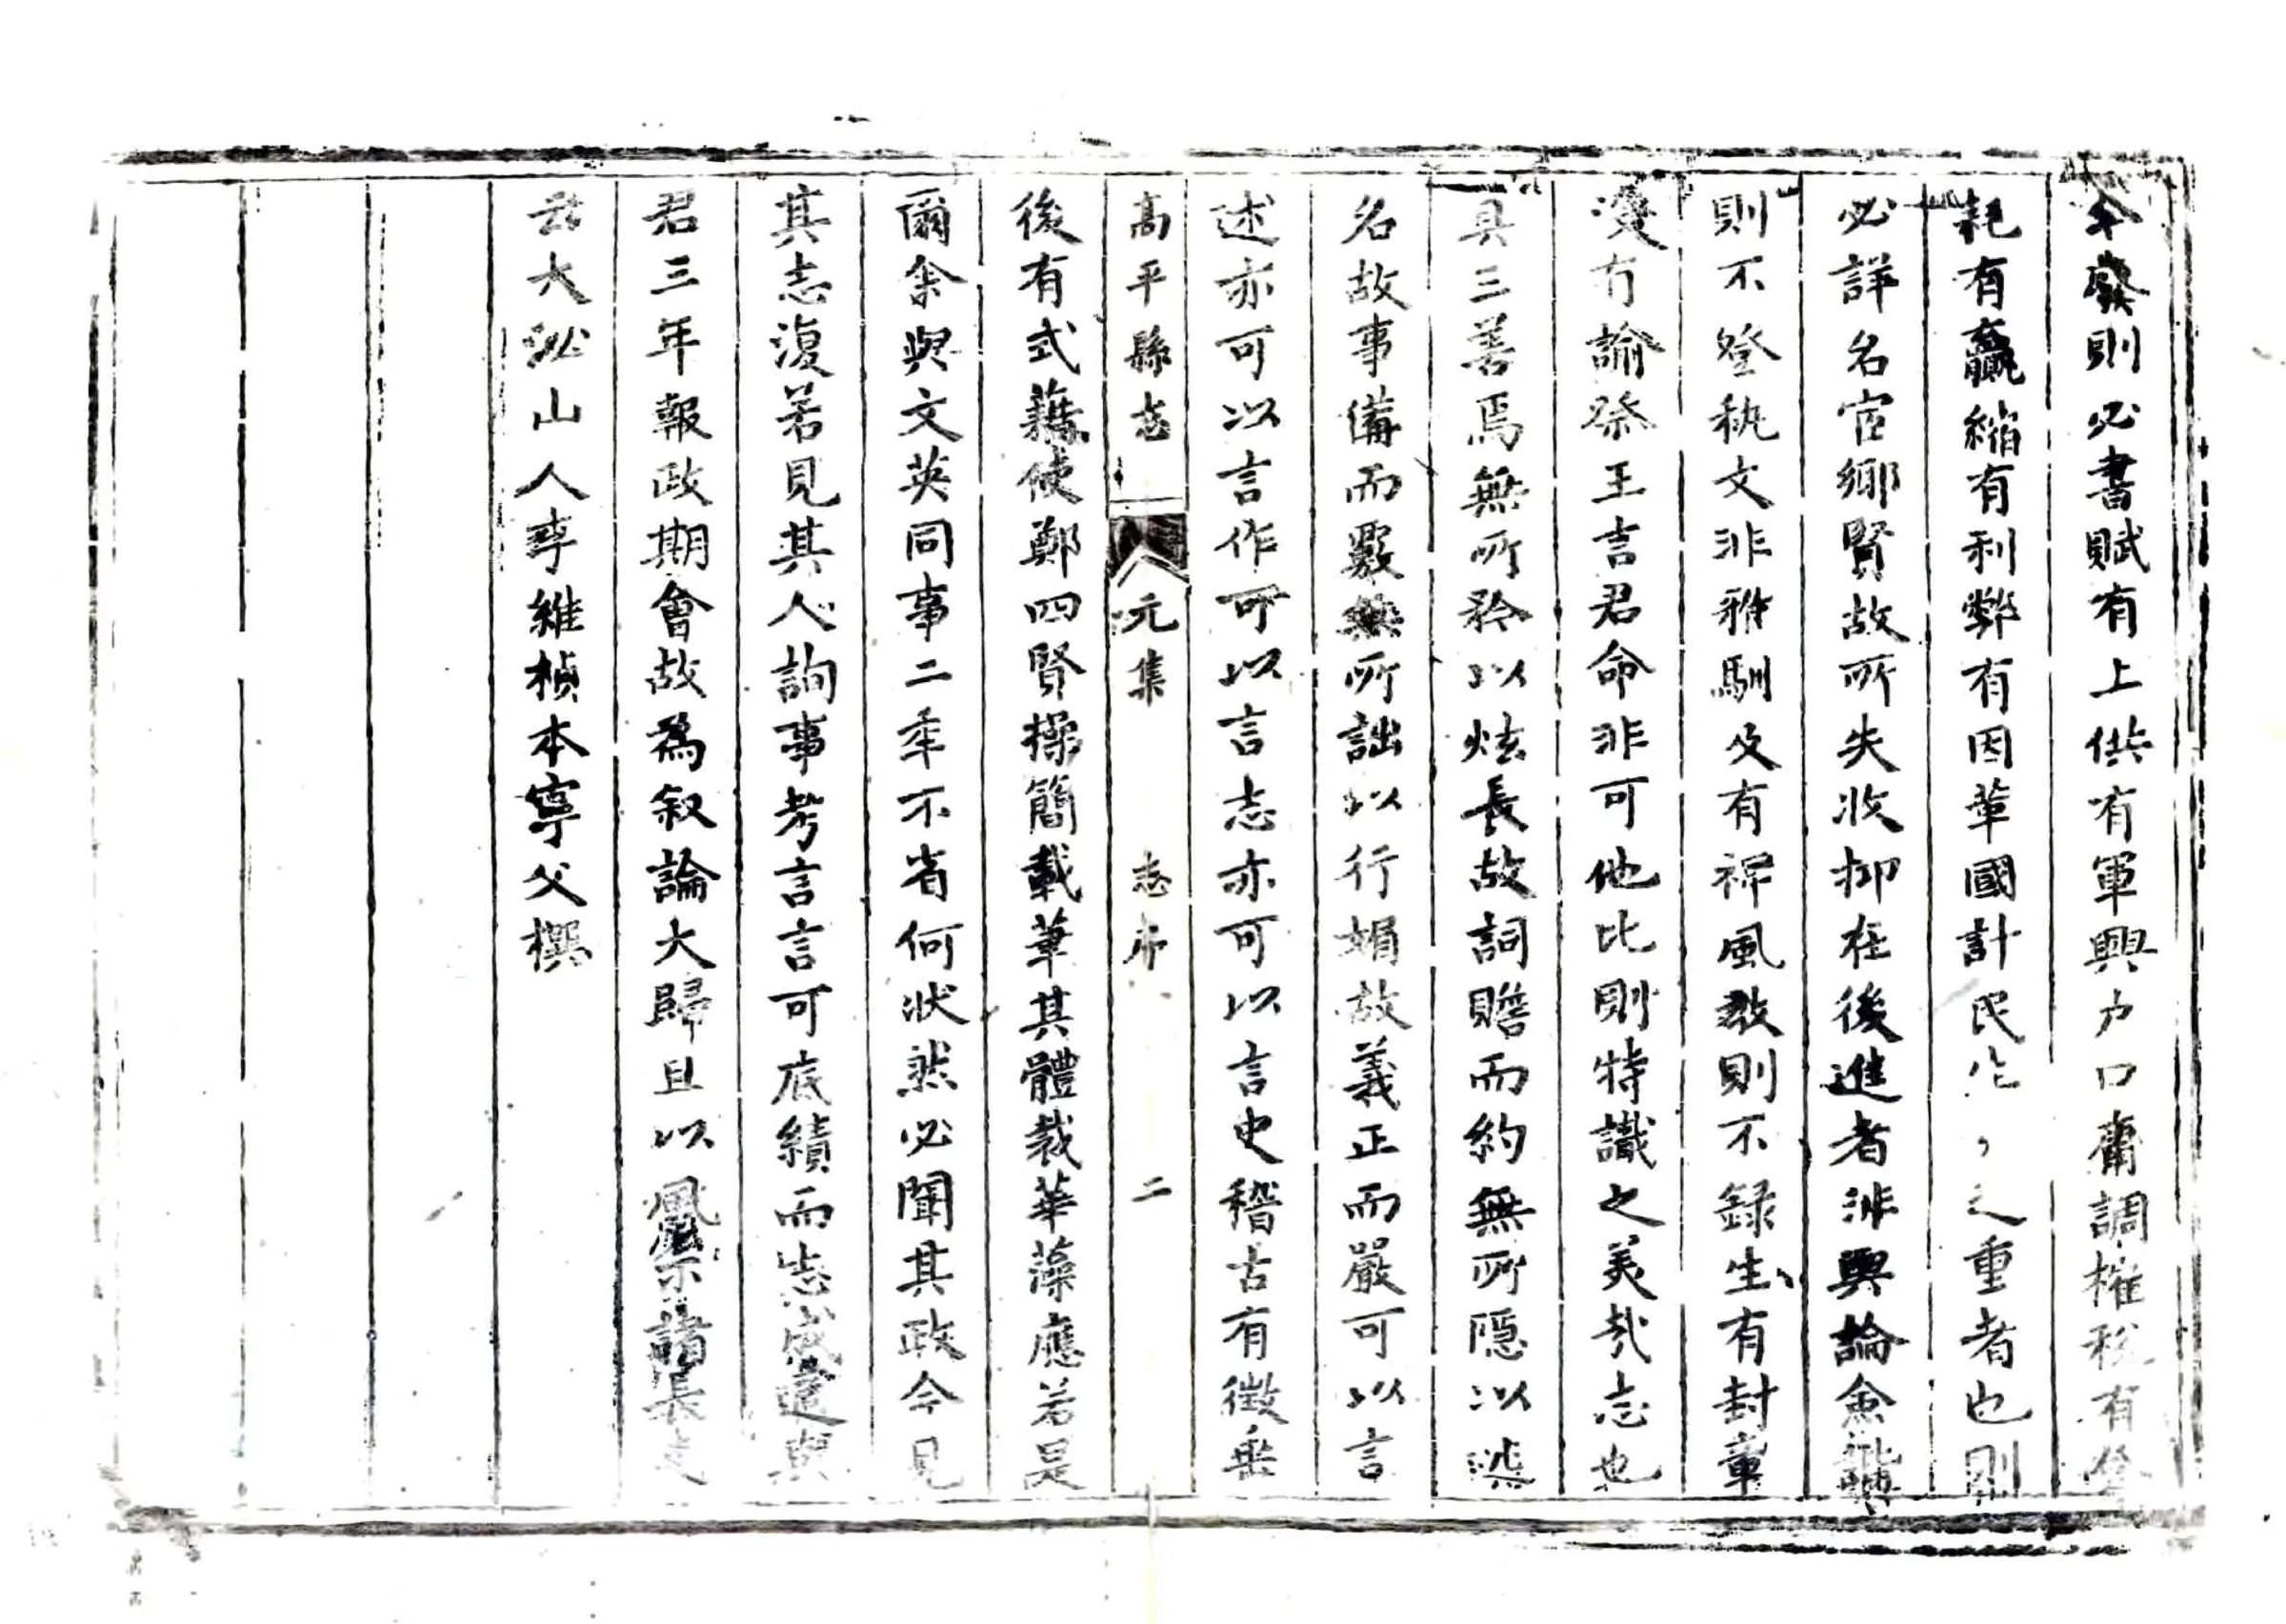 則必書賦有上供有軍興户口庸調榷稅有
耗有贏縮有利弊有因革國計民之重者也則
必詳名宦鄉賢故所失收抑在後進者非輿論僉
則不登秇文非雅馴及有裨風敎則不録生有封章
没有諭祭王言君命非可他比則特識之美哉志也
具三善焉無所矜以炫長故詞贍而約無所隱以
名故事備而覈無所詘以行媚故義正而嚴可以言
述亦可以言作可以言志亦可以言史稽古有徵垂
高平縣志
元集
志序
二
後有式藉使鄭四賢操簡載筆其體裁華藻應若是
爾余與文英同事二年不省何狀然必聞其政今見
其志復若見其人詢事考言言可底績而志成遣與
君三年報政期會故爲叙論大歸且以風示諸長吏
云大泌山人李維楨本寧父撰